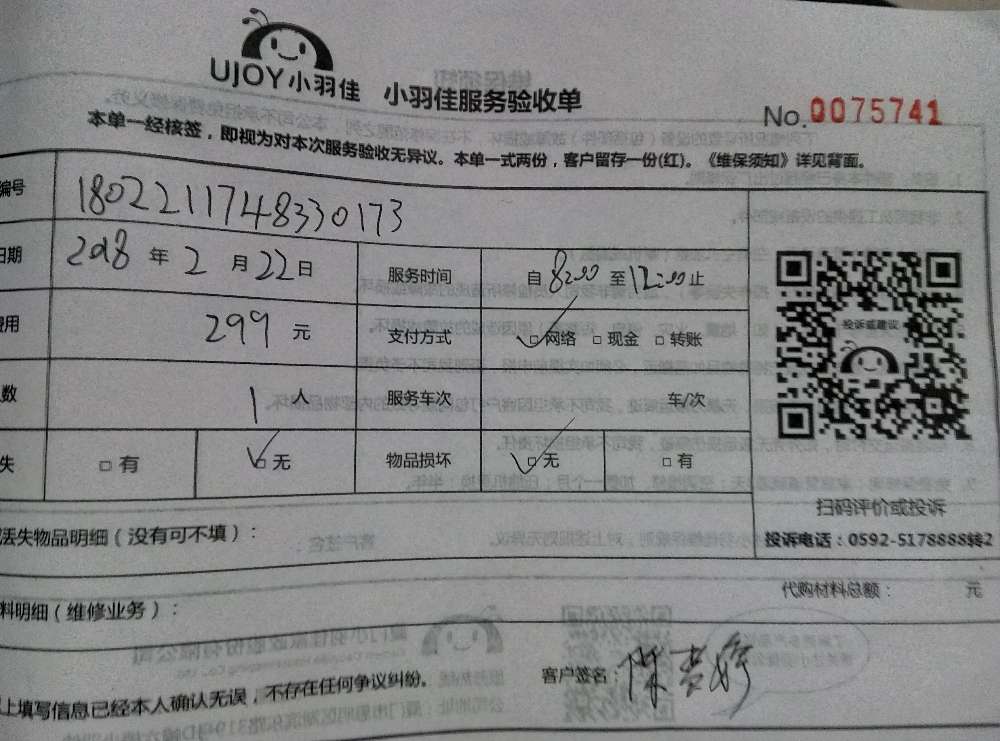 UJOY小羽佳 小羽佳服务验收单
No.0075741
本单一经核签，即视为对本次服务验收无异议。本单一式两份，客户留存一份(红)。《维保须知》详见背面。
编号 1802211748330173
日期 2018 年 2 月 22 日 服务时间 自 8:00 至 12:00 止
费用 299 元 支付方式 □网络 □现金 □转账
人数 1 人 服务车次 车/次
失 □有 □无 物品损坏 □无 □有
投诉或建议
扫码评价或投诉
投诉电话：0592-5178888转2
丢失物品明细（没有可不填）：
代购材料总额： 元
料明细（维修业务）：
上填写信息已经本人确认无误，不存在任何争议纠纷。
客户签名：